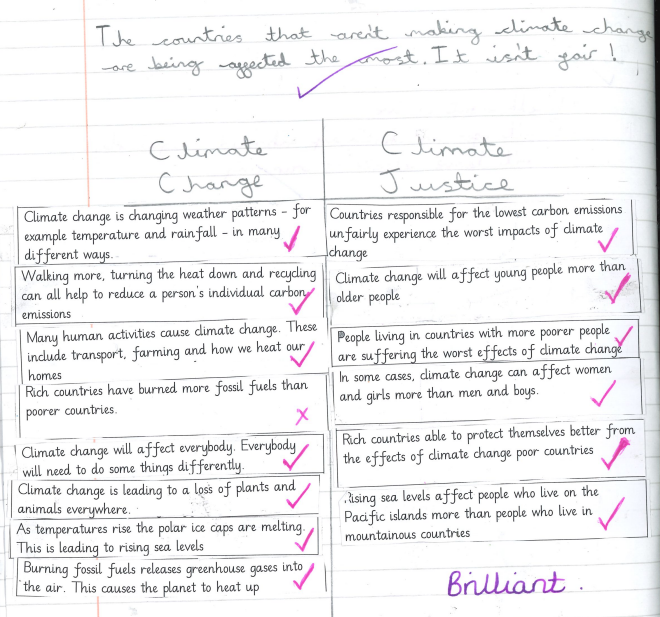 The countries that aren't making climate change
are being affected the most. It isn't fair!
Climate
Change
Climate change is changing weather patterns – for
example temperature and rainfall – in many
different ways.
Walking more, turning the heat down and recycling
can all help to reduce a person's individual carbon
emissions
Many human activities cause climate change. These
include transport, farming and how we heat our
homes
Rich countries have burned more fossil fuels than
poorer countries.
Climate change will affect everybody. Everybody
will need to do some things differently.
Climate change is leading to a loss of plants and
animals everywhere.
As temperatures rise the polar ice caps are melting.
This is leading to rising sea levels
Burning fossil fuels releases greenhouse gases into
the air. This causes the planet to heat up
Climate
Justice
Countries responsible for the lowest carbon emissions
unfairly experience the worst impacts of climate
change
Climate change will affect young people more than
older people
People living in countries with more poorer people
are suffering the worst effects of climate change
In some cases, climate change can affect women
and girls more than men and boys.
Rich countries able to protect themselves better from
the effects of climate change poor countries
Rising sea levels affect people who live on the
Pacific islands more than people who live in
mountainous countries
Brilliant.